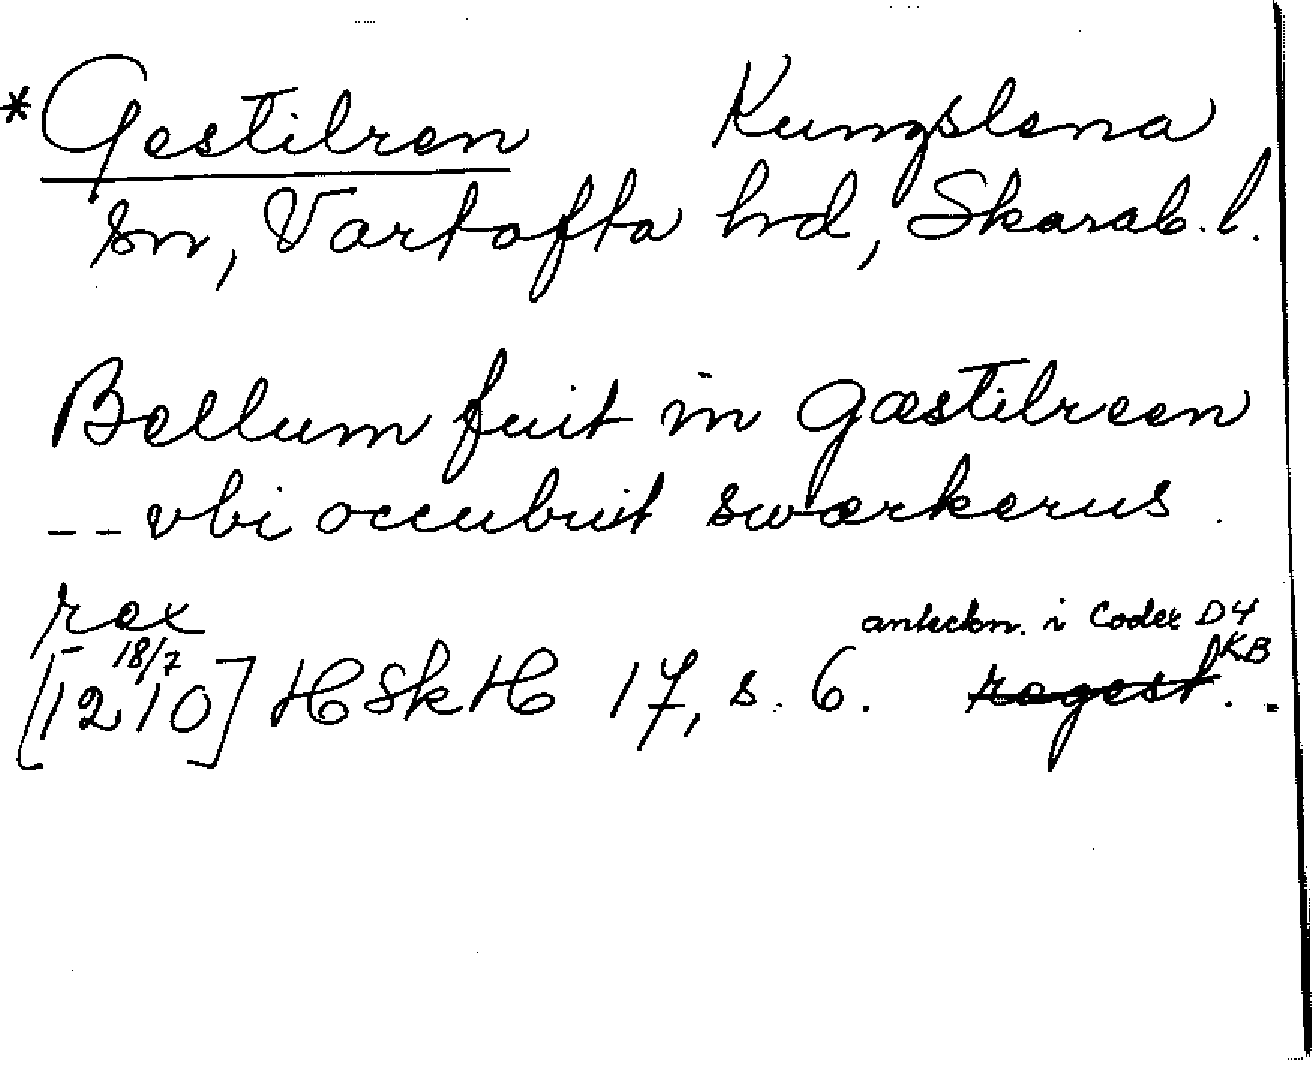 *Gestilren Kungslena
sn, Vartofta hd, Skarab. l.
Bellum fuit in gæstilreen
-- vbi occubuit swærkerus
rex
anteckn. i Codex D4
KB
[1210] 18/7 HSkH 17, s. 6. regest..